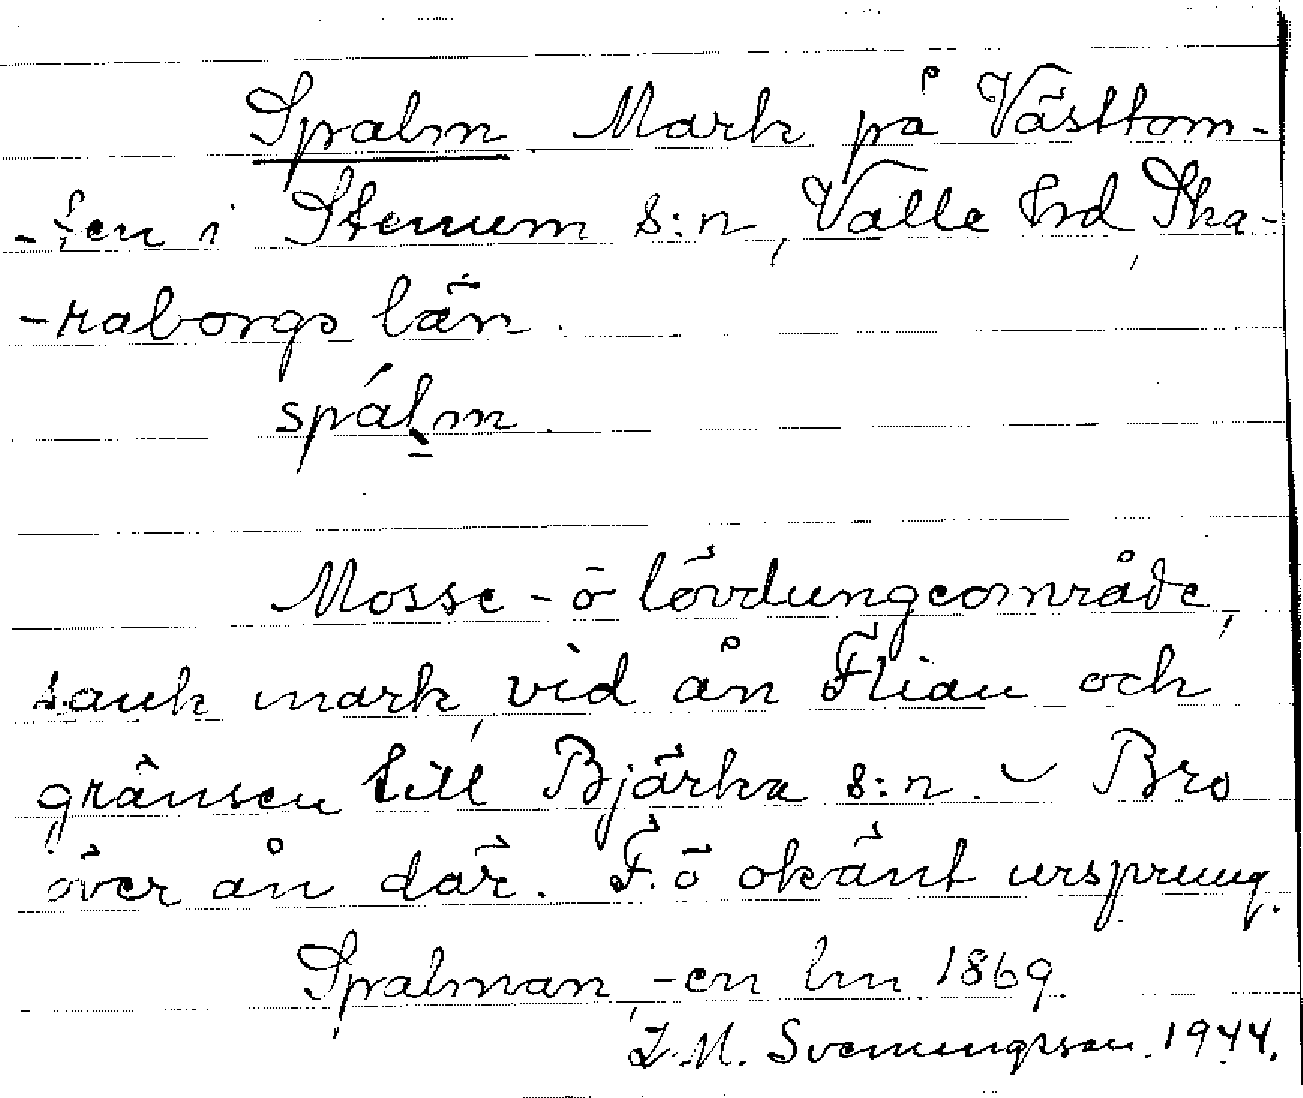 Spalm. Mark på Västtom-
-ten i Stenum s:n, Valle hrd, Ska-
-raborgs län.
spálm.
Mosse- o lövdungeområde,
sank mark, vid ån Flian och
gränsen till Bjärka s:n. – Bro
över ån där. F. ö okänt ursprung.
Spalman, -en lm 1869
J. M. Svenungsson. 1944.